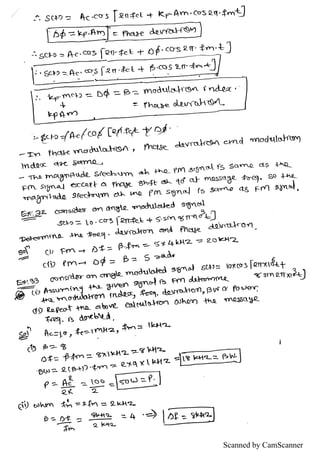 ∴ S(t) = Ac·cos [2π·fct + Kp·Am·cos2π·fmt]
Δφ = Kp·Am = Phase deviation
∴ S(t) = Ac·cos [2π·fct + Δφ·cos2π·fm·t]
∴ S(t) = Ac·cos [2π·fct + β·cos2π·fm·t]
∴ Kp m(t) = Δφ = B = modulation index.
KpAm = Phase deviation.
- In Phase modulation, Phase deviation and modulation
index are same.
- The magnitude Spectrum of the PM signal is same as the
FM signal except a Phase shift of 90° at message freq. So the
magnitude Spectrum of the PM signal is same as FM signal.
Ex:32 consider an angle modulated signal
S(t) = 10·cos [2π·fct + 5·sin 8π10³t]
Determine the freq. deviation and Phase deviation.
Sol (i) FM → Δf = β·fm = 5x4kHz = 20kHz
(ii) PM → Δφ = B = 5 rad
Ex:33 consider an angle modulated signal S(t) = 10cos[2π10⁶t +
8 sin2π10³t]
(i) Assuming the given signal is FM determine
the modulation index, freq. deviation, BW & Power.
(ii) Repeat the above calculation when the message
freq. is doubled.
Sol Ac=10, fc=1MHz, fm=1kHz
(i) B = 8
Δf = β·fm = 8x1kHz = 8kHz
BW = 2(B+1)·fm = 2x9x1kHz = 18kHz = BW
P = Ac²/2R = 100/2 = 50W = P.
(ii) When fm' = 2fm = 2kHz
B = Δf/fm = 8kHz/2kHz = 4 ⇒ Δf = 8kHz
Scanned by CamScanner